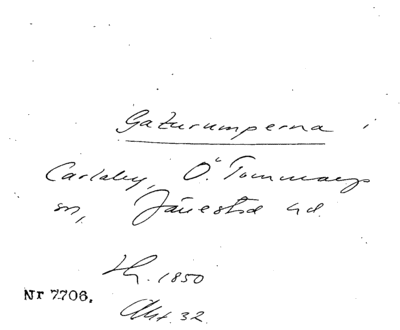 Gaturumperna i
Carlaby, Ö. Tommarps
sn, Järrestad hd.
1850
Nr 7706.
Akt. 32